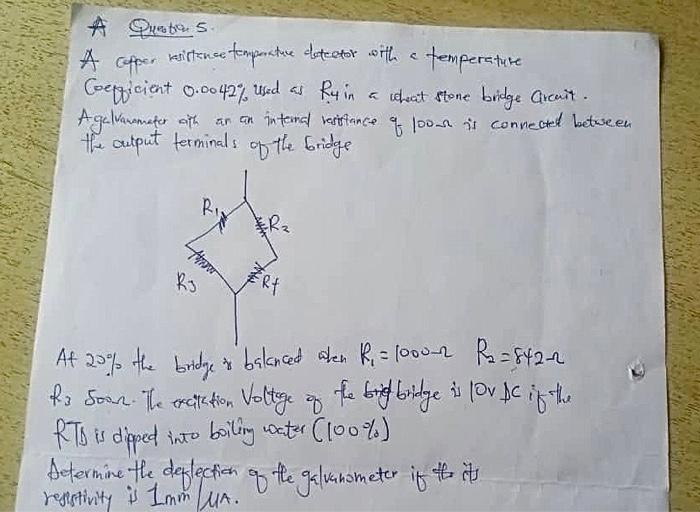 A Question 5.
A copper resistance temperature detector with a temperature
Coefficient 0.0042% used as R4 in a wheat stone bridge Circuit.
A galvanometer with an an internal resistance of 100Ω is connected between
the output terminals of the bridge
R1
R2
R3
R4
At 20% the bridge is balanced when R1 = 1000Ω R2 = 842Ω
R3 500Ω. The excitation Voltage of the brig bridge is 10V DC if the
RTD is dipped into boiling water (100%)
Determine the deflection of the galvanometer if the its
resistivity is 1mm/μA.